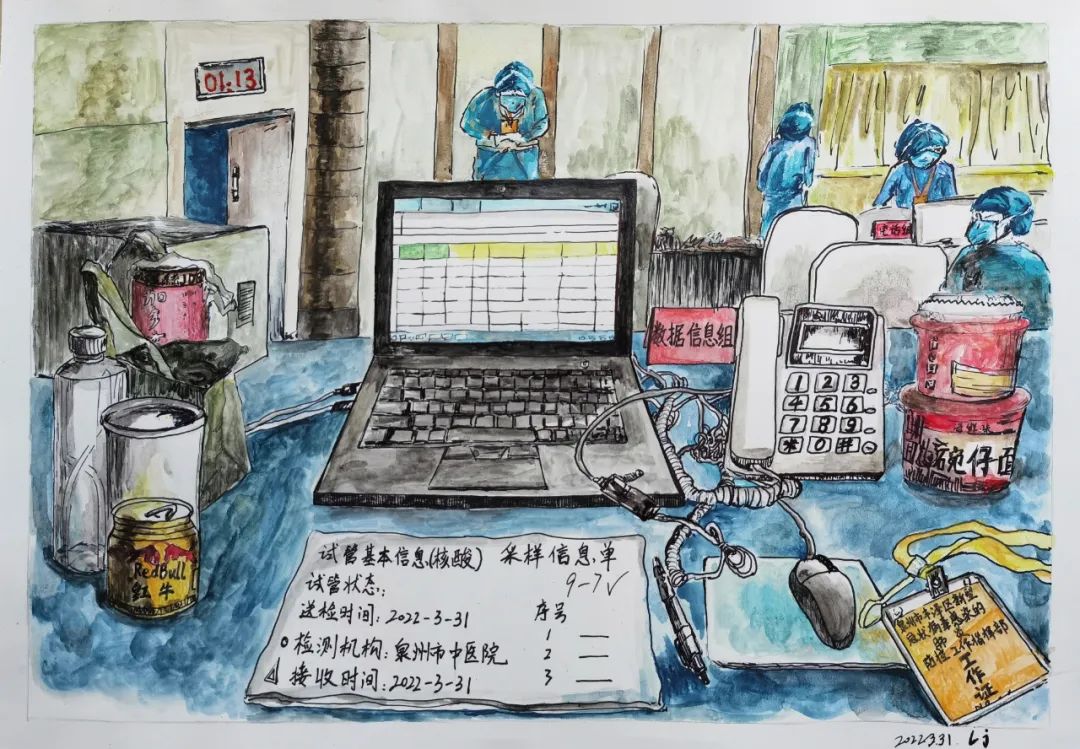 01:13
电话组
数据信息组
1 2 3
4 5 6
7 8 9
* 0 #
碗仔面
RedBull
红牛
试管基本信息(核酸) 采样信息单
试管状态: 9-7√
送检时间: 2022-3-31 序号
检测机构: 泉州市中医院 1
2
接收时间: 2022-3-31 3
泉州市丰泽区新型
冠状病毒感染的
肺炎
防控工作指挥部
工作证
2022.3.31. Lj